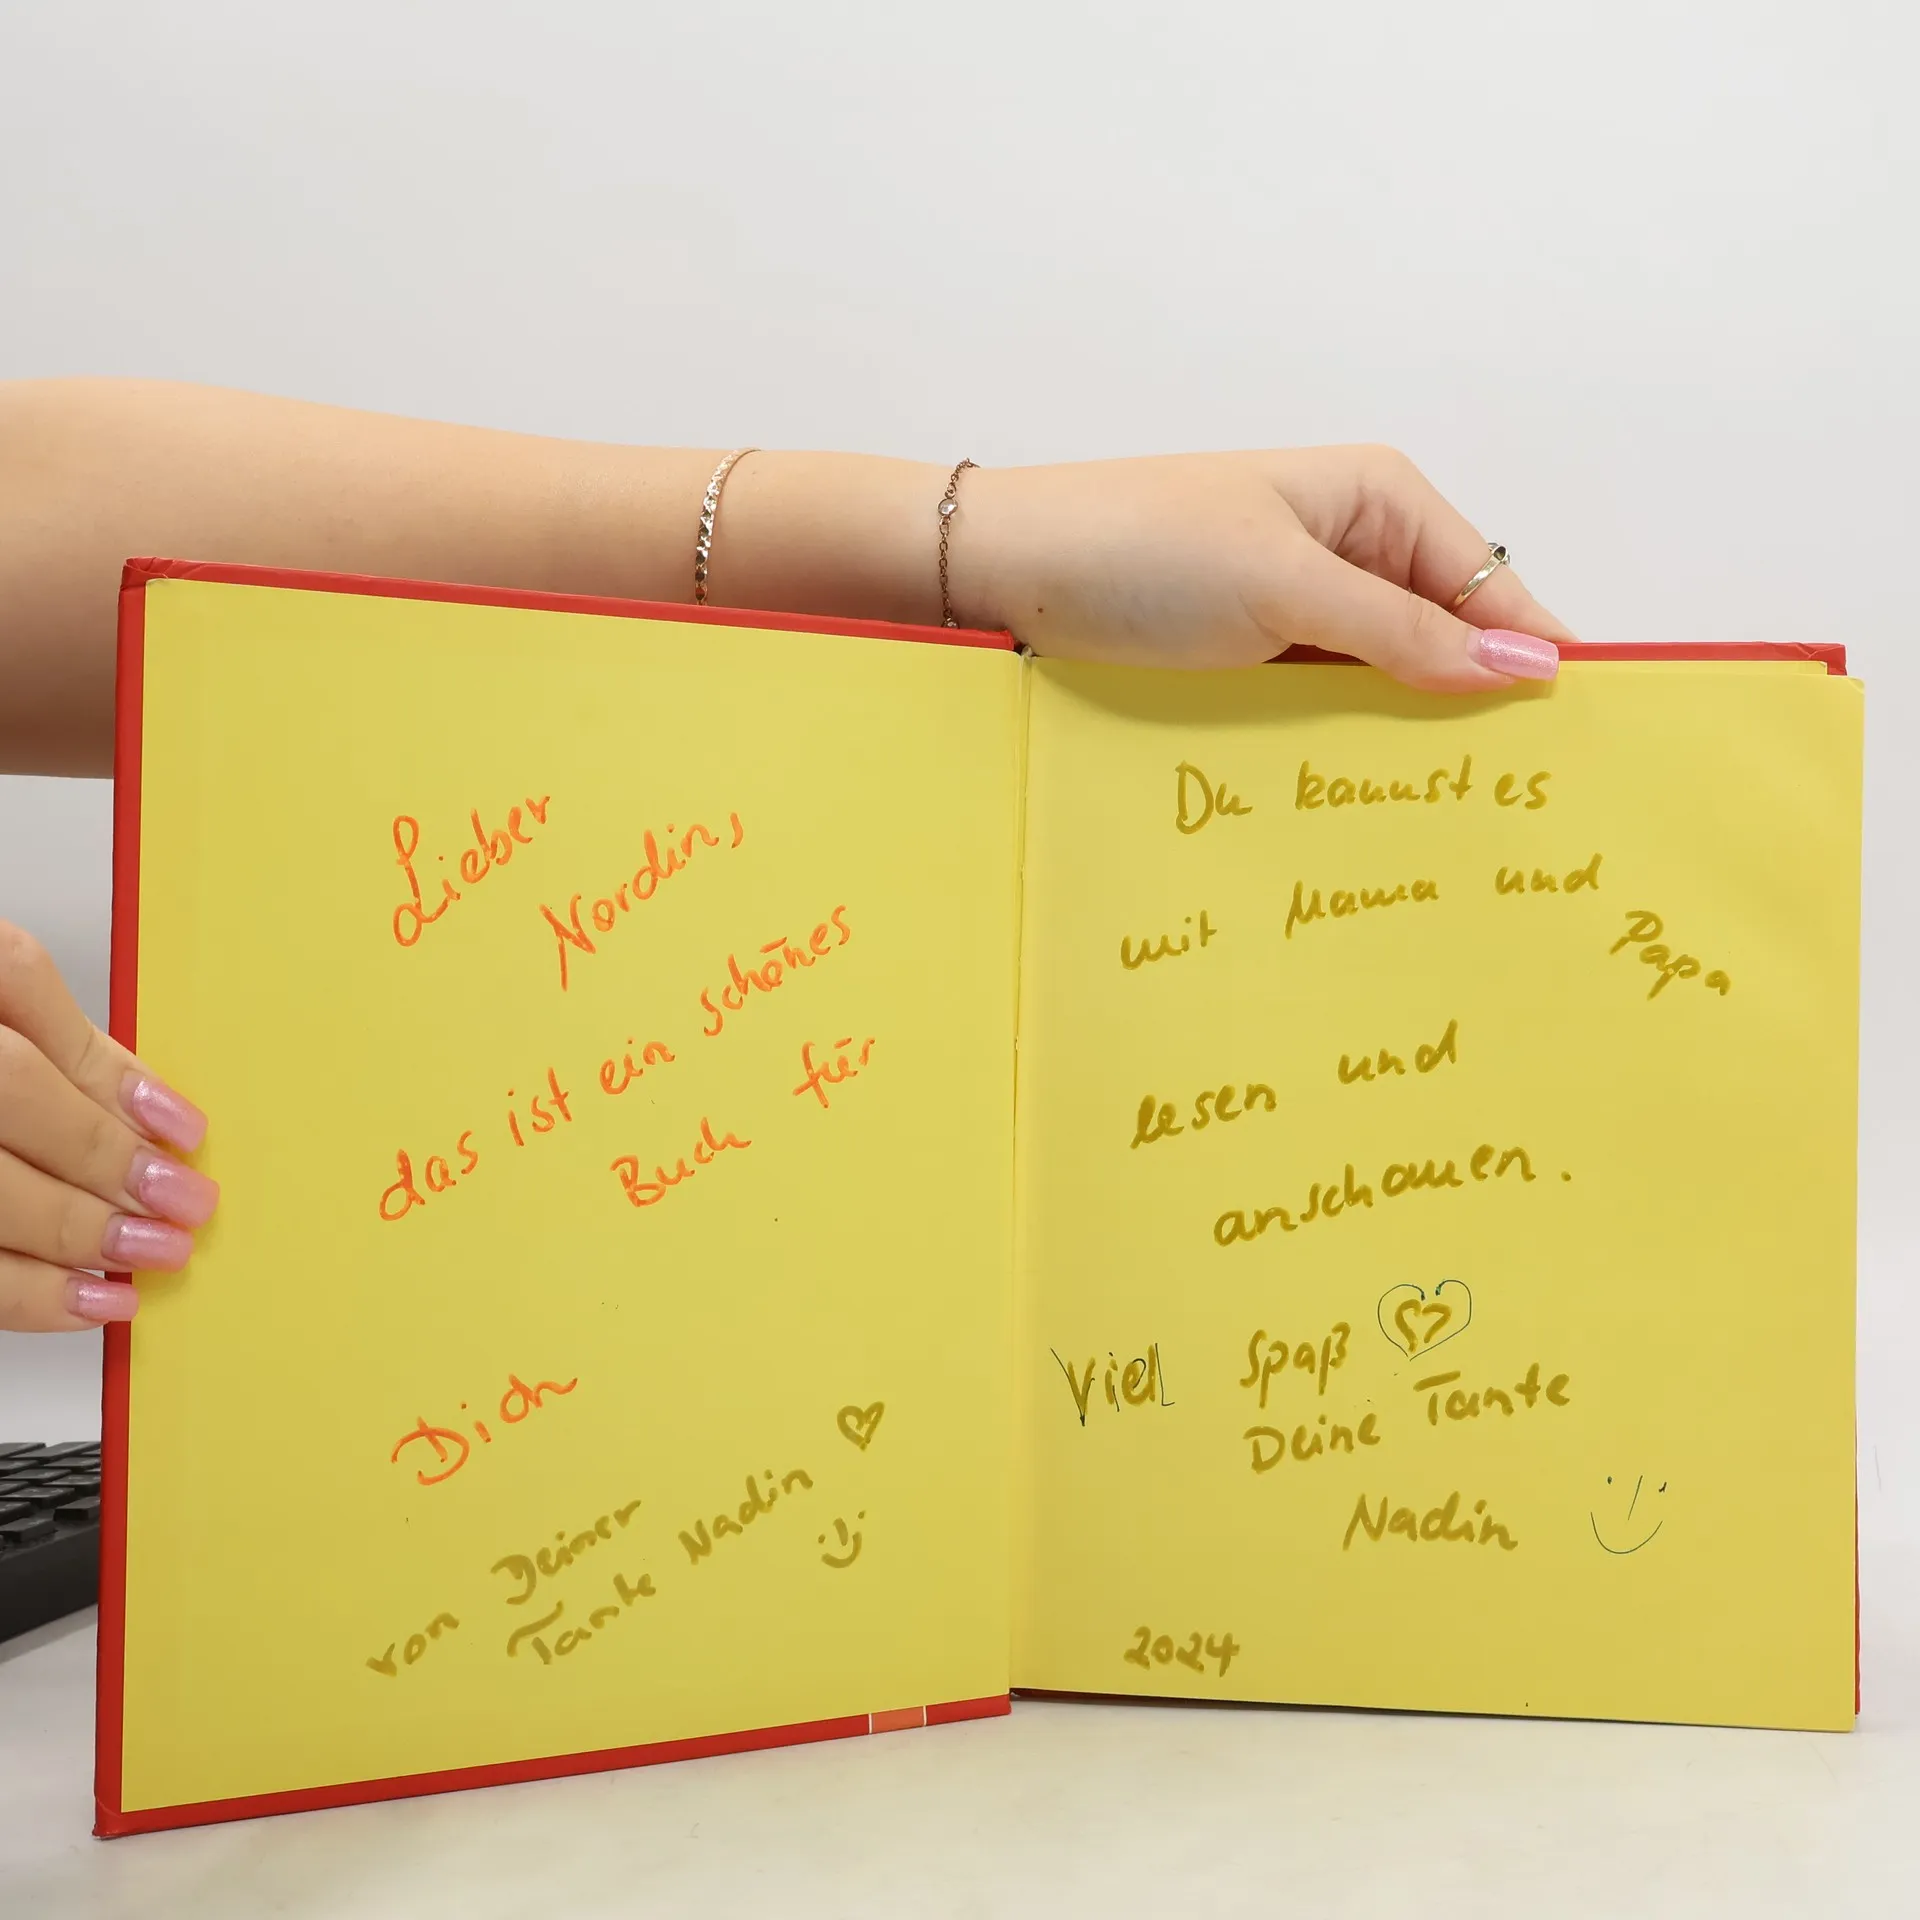 Lieber
Nordin,
das ist ein schönes
Buch für
Dich
von Deiner
Tante Nadin
Du kannst es
mit Mama und
Papa
lesen und
anschauen.
Viel Spaß
Deine Tante
Nadin
2024